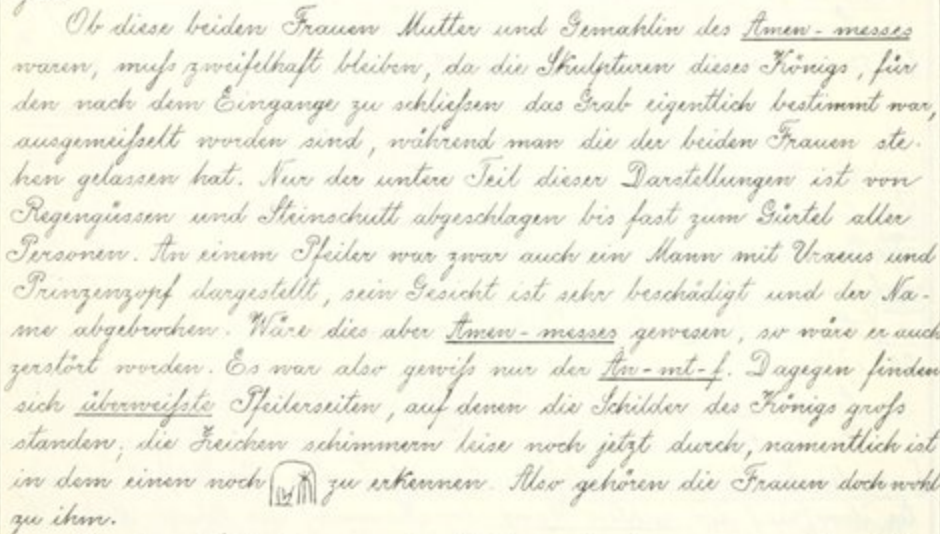 Ob diese beiden Frauen Mutter und Gemahlin des Amen-messes
waren, muſs zweifelhaft bleiben, da die Skulpturen dieses Königs, für
den nach dem Eingange zu schlieſsen das Grab eigentlich bestimmt war,
ausgemeiſselt worden sind, während man die der beiden Frauen ste-
hen gelassen hat. Nur der untere Teil dieser Darstellungen ist von
Regengüssen und Steinschutt abgeschlagen bis fast zum Gürtel aller
Personen. An einem Pfeiler war zwar auch ein Mann mit Uraeus und
Prinzenzopf dargestellt, sein Gesicht ist sehr beschädigt und der Na-
me abgebrochen. Wäre dies aber Amen-messes gewesen, so wäre er auch
zerstört worden. Es war also gewiſs nur der An-mt-f. Dagegen finden
sich überweiſste Pfeilerseiten, auf denen die Schilder des Königs groſs
standen; die Zeichen schimmern leise noch jetzt durch, namentlich ist
in dem einen noch zu erkennen. Also gehören die Frauen doch wohl
zu ihm.